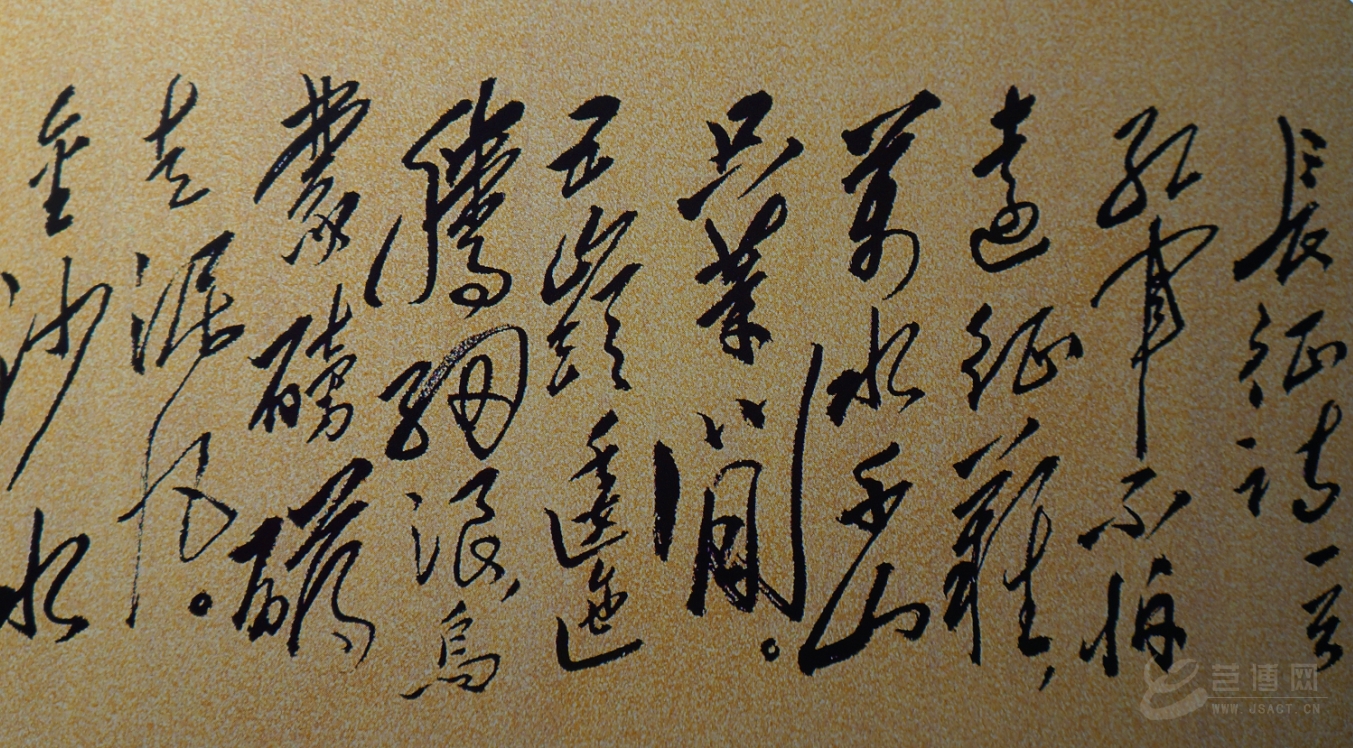 長征詩一首
紅軍不怕
遠征難，
萬水千山
只等閒。
五嶺逶迤
騰細浪，烏
蒙磅礴
走泥丸。
金沙水
艺博网
WWW.JSACT.CN